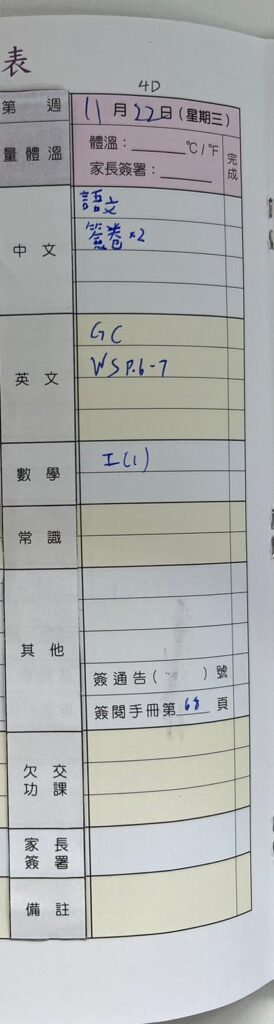 表
4D
第 週 11月22日(星期三)
量體溫 體溫：_____ °C/°F 完成
家長簽署：_____
中文 語文
簽卷×2
英文 GC
WS P.6-7
數學 I(1)
常識
其他
簽通告( )號
簽閱手冊第 68 頁
欠交功課
家長簽署
備註